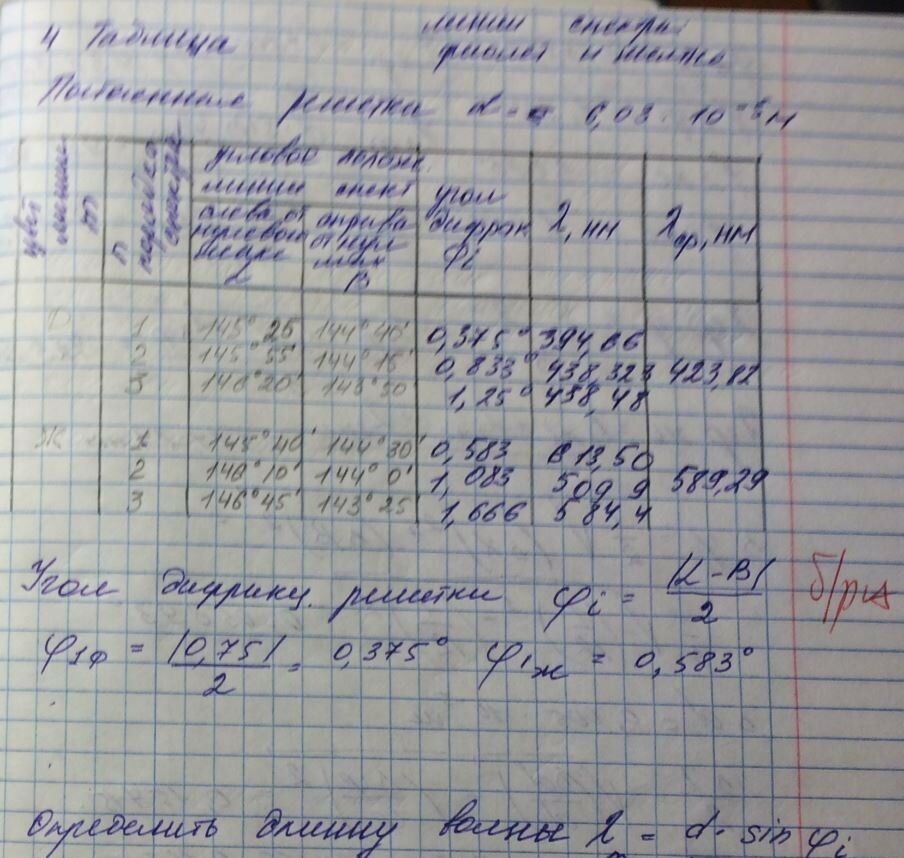 4 Таблица
линии спектра
фиолет и желто
Постоянная решетки d = 6,03 · 10⁻⁵ м
цвет линии m
n порядка спектра
угловое полож. линии спект
слева от нулевого макс α
справа от нул мах β
угол дифрак φi
λ, нм
λср, нм
1 145° 25 144° 40' 0,375° 394,66
2 145° 55' 144° 15' 0,833° 438,323 423,82
3 146° 20' 143° 50' 1,25° 438,48
Ж 1 145° 40' 144° 30' 0,583 613,50
2 146° 10' 144° 0' 1,083 569 9 589,29
3 146° 45' 143° 25' 1,666 584,4
Угол дифракц. решетки φi = |α-β| / 2
б/рид
φ1ф = |0,75| / 2 = 0,375° φ1ж = 0,583°
Определить длинну волны λ = d · sin φi